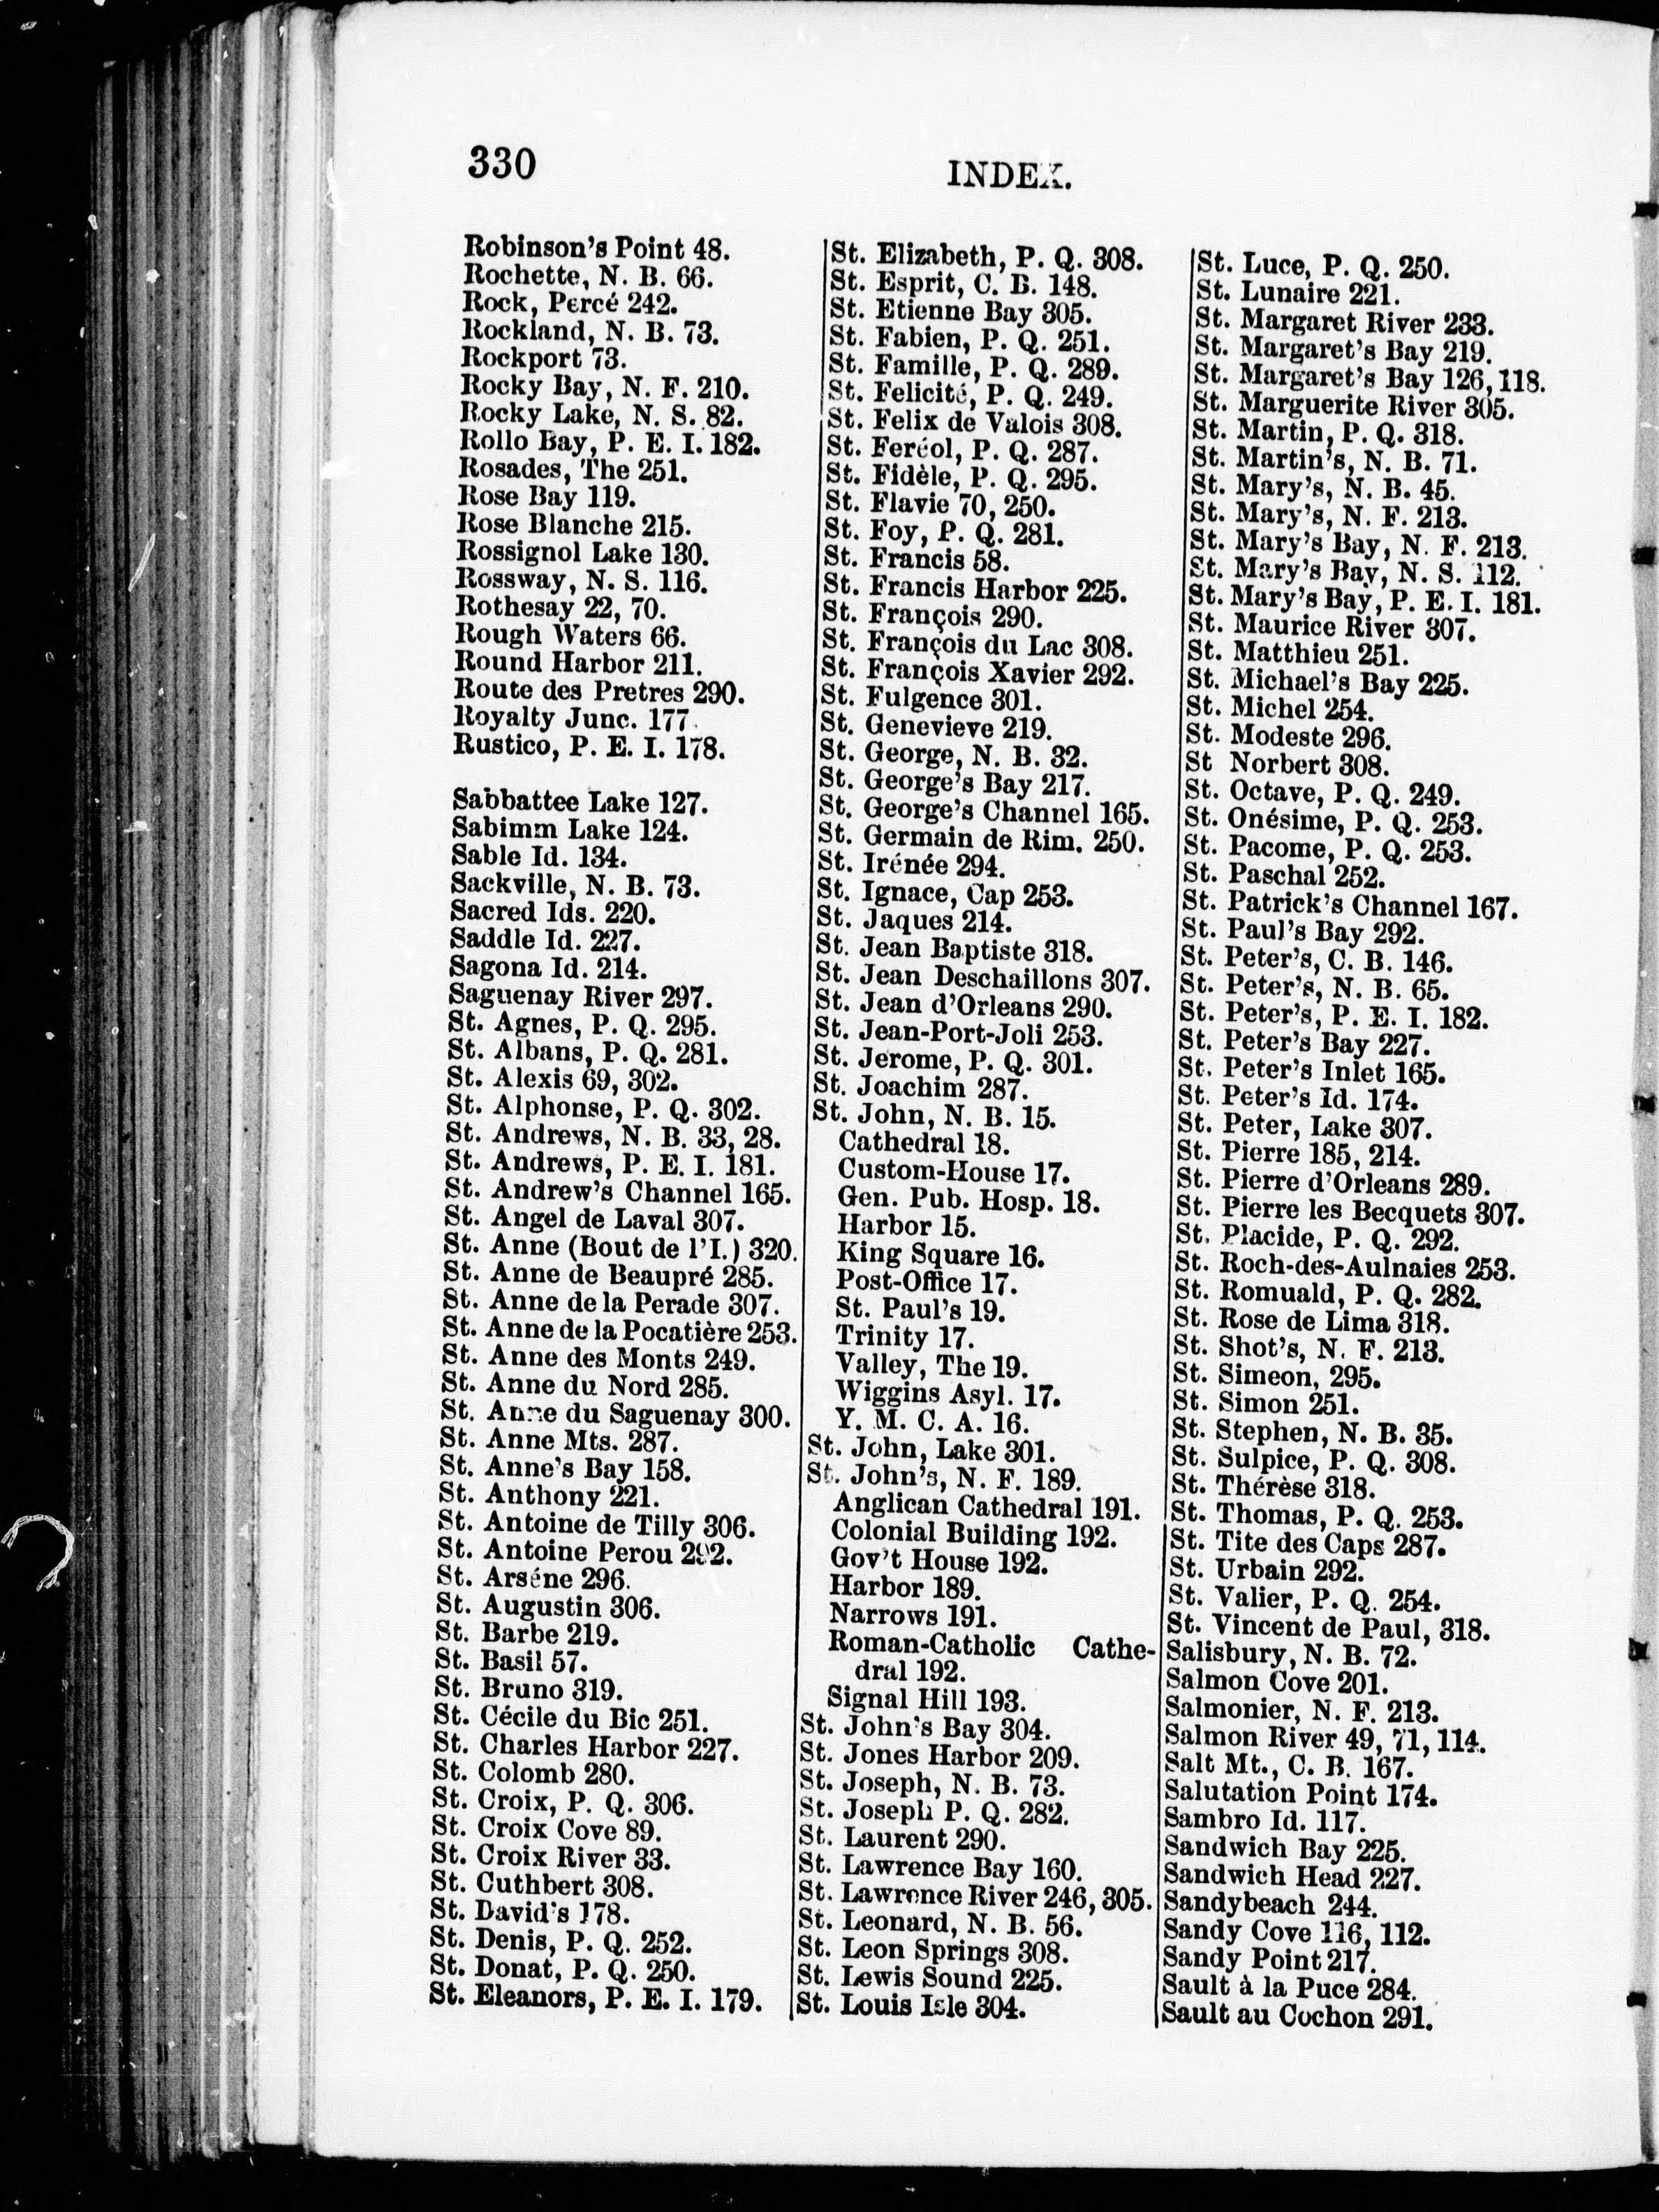 330
INDEX.
Robinson's Point 48.
Rochette, N. B. 66.
Rock, Percé 242.
Rockland, N. B. 73.
Rockport 73.
Rocky Bay, N. F. 210.
Rocky Lake, N. S. 82.
Rollo Bay, P. E. I. 182.
Rosades, The 251.
Rose Bay 119.
Rose Blanche 215.
Rossignol Lake 130.
Rossway, N. S. 116.
Rothesay 22, 70.
Rough Waters 66.
Round Harbor 211.
Route des Pretres 290.
Royalty Junc. 177.
Rustico, P. E. I. 178.
Sabbattee Lake 127.
Sabimm Lake 124.
Sable Id. 134.
Sackville, N. B. 73.
Sacred Ids. 220.
Saddle Id. 227.
Sagona Id. 214.
Saguenay River 297.
St. Agnes, P. Q. 295.
St. Albans, P. Q. 281.
St. Alexis 69, 302.
St. Alphonse, P. Q. 302.
St. Andrews, N. B. 33, 28.
St. Andrews, P. E. I. 181.
St. Andrew's Channel 165.
St. Angel de Laval 307.
St. Anne (Bout de l'I.) 320.
St. Anne de Beaupré 285.
St. Anne de la Perade 307.
St. Anne de la Pocatière 253.
St. Anne des Monts 249.
St. Anne du Nord 285.
St. Anne du Saguenay 300.
St. Anne Mts. 287.
St. Anne's Bay 158.
St. Anthony 221.
St. Antoine de Tilly 306.
St. Antoine Perou 292.
St. Arséne 296.
St. Augustin 306.
St. Barbe 219.
St. Basil 57.
St. Bruno 319.
St. Cécile du Bic 251.
St. Charles Harbor 227.
St. Colomb 280.
St. Croix, P. Q. 306.
St. Croix Cove 89.
St. Croix River 33.
St. Cuthbert 308.
St. David's 178.
St. Denis, P. Q. 252.
St. Donat, P. Q. 250.
St. Eleanors, P. E. I. 179.
St. Elizabeth, P. Q. 308.
St. Esprit, C. B. 148.
St. Etienne Bay 305.
St. Fabien, P. Q. 251.
St. Famille, P. Q. 289.
St. Felicité, P. Q. 249.
St. Felix de Valois 308.
St. Feréol, P. Q. 287.
St. Fidèle, P. Q. 295.
St. Flavie 70, 250.
St. Foy, P. Q. 281.
St. Francis 58.
St. Francis Harbor 225.
St. François 290.
St. François du Lac 308.
St. François Xavier 292.
St. Fulgence 301.
St. Genevieve 219.
St. George, N. B. 32.
St. George's Bay 217.
St. George's Channel 165.
St. Germain de Rim. 250.
St. Irénée 294.
St. Ignace, Cap 253.
St. Jaques 214.
St. Jean Baptiste 318.
St. Jean Deschaillons 307.
St. Jean d'Orleans 290.
St. Jean-Port-Joli 253.
St. Jerome, P. Q. 301.
St. Joachim 287.
St. John, N. B. 15.
Cathedral 18.
Custom-House 17.
Gen. Pub. Hosp. 18.
Harbor 15.
King Square 16.
Post-Office 17.
St. Paul's 19.
Trinity 17.
Valley, The 19.
Wiggins Asyl. 17.
Y. M. C. A. 16.
St. John, Lake 301.
St. John's, N. F. 189.
Anglican Cathedral 191.
Colonial Building 192.
Gov't House 192.
Harbor 189.
Narrows 191.
Roman-Catholic Cathe-
dral 192.
Signal Hill 193.
St. John's Bay 304.
St. Jones Harbor 209.
St. Joseph, N. B. 73.
St. Joseph P. Q. 282.
St. Laurent 290.
St. Lawrence Bay 160.
St. Lawrence River 246, 305.
St. Leonard, N. B. 56.
St. Leon Springs 308.
St. Lewis Sound 225.
St. Louis Isle 304.
St. Luce, P. Q. 250.
St. Lunaire 221.
St. Margaret River 233.
St. Margaret's Bay 219.
St. Margaret's Bay 126, 118.
St. Marguerite River 305.
St. Martin, P. Q. 318.
St. Martin's, N. B. 71.
St. Mary's, N. B. 45.
St. Mary's, N. F. 213.
St. Mary's Bay, N. F. 213.
St. Mary's Bay, N. S. 112.
St. Mary's Bay, P. E. I. 181.
St. Maurice River 307.
St. Matthieu 251.
St. Michael's Bay 225.
St. Michel 254.
St. Modeste 296.
St Norbert 308.
St. Octave, P. Q. 249.
St. Onésime, P. Q. 253.
St. Pacome, P. Q. 253.
St. Paschal 252.
St. Patrick's Channel 167.
St. Paul's Bay 292.
St. Peter's, C. B. 146.
St. Peter's, N. B. 65.
St. Peter's, P. E. I. 182.
St. Peter's Bay 227.
St. Peter's Inlet 165.
St. Peter's Id. 174.
St. Peter, Lake 307.
St. Pierre 185, 214.
St. Pierre d'Orleans 289.
St. Pierre les Becquets 307.
St. Placide, P. Q. 292.
St. Roch-des-Aulnaies 253.
St. Romuald, P. Q. 282.
St. Rose de Lima 318.
St. Shot's, N. F. 213.
St. Simeon, 295.
St. Simon 251.
St. Stephen, N. B. 35.
St. Sulpice, P. Q. 308.
St. Thérèse 318.
St. Thomas, P. Q. 253.
St. Tite des Caps 287.
St. Urbain 292.
St. Valier, P. Q. 254.
St. Vincent de Paul, 318.
Salisbury, N. B. 72.
Salmon Cove 201.
Salmonier, N. F. 213.
Salmon River 49, 71, 114.
Salt Mt., C. B. 167.
Salutation Point 174.
Sambro Id. 117.
Sandwich Bay 225.
Sandwich Head 227.
Sandybeach 244.
Sandy Cove 116, 112.
Sandy Point 217.
Sault à la Puce 284.
Sault au Cochon 291.